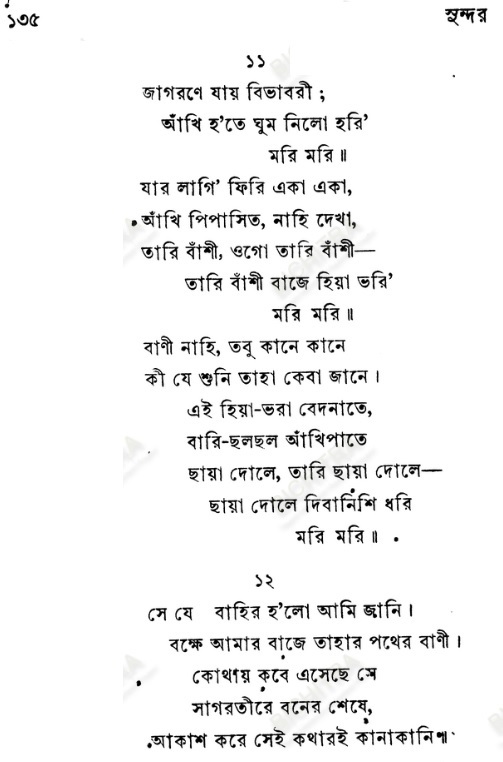 ১৩৫ সুন্দর
১১
জাগরণে যায় বিভাবরী ;
আঁখি হ'তে ঘুম নিলো হরি'
মরি মরি ॥
যার লাগি' ফিরি একা একা,
আঁখি পিপাসিত, নাহি দেখা,
তারি বাঁশী, ওগো তারি বাঁশী—
তারি বাঁশী বাজে হিয়া ভরি'
মরি মরি ॥
বাণী নাহি, তবু কানে কানে
কী যে শুনি তাহা কেবা জানে ।
এই হিয়া-ভরা বেদনাতে,
বারি-ছলছল আঁখিপাতে
ছায়া দোলে, তারি ছায়া দোলে—
ছায়া দোলে দিবানিশি ধরি
মরি মরি ॥
১২
সে যে বাহির হ'লো আমি জানি ।
বক্ষে আমার বাজে তাহার পথের বাণী ।
কোথায় কবে এসেছে সে
সাগরতীরে বনের শেষে,
আকাশ করে সেই কথারই কানাকানি ॥